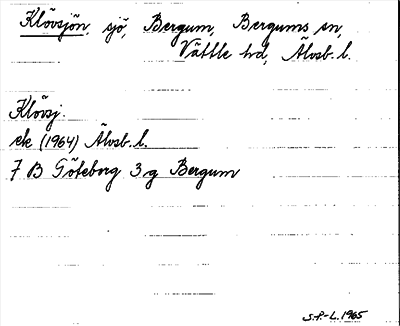 Klövsjön, sjö, Bergum, Bergums sn,
Vättle hd, Älvsb. l.
Klövsj.
ek (1964) Älvsb. l.
7 B Göteborg 3 g Bergum
S.P-L. 1965